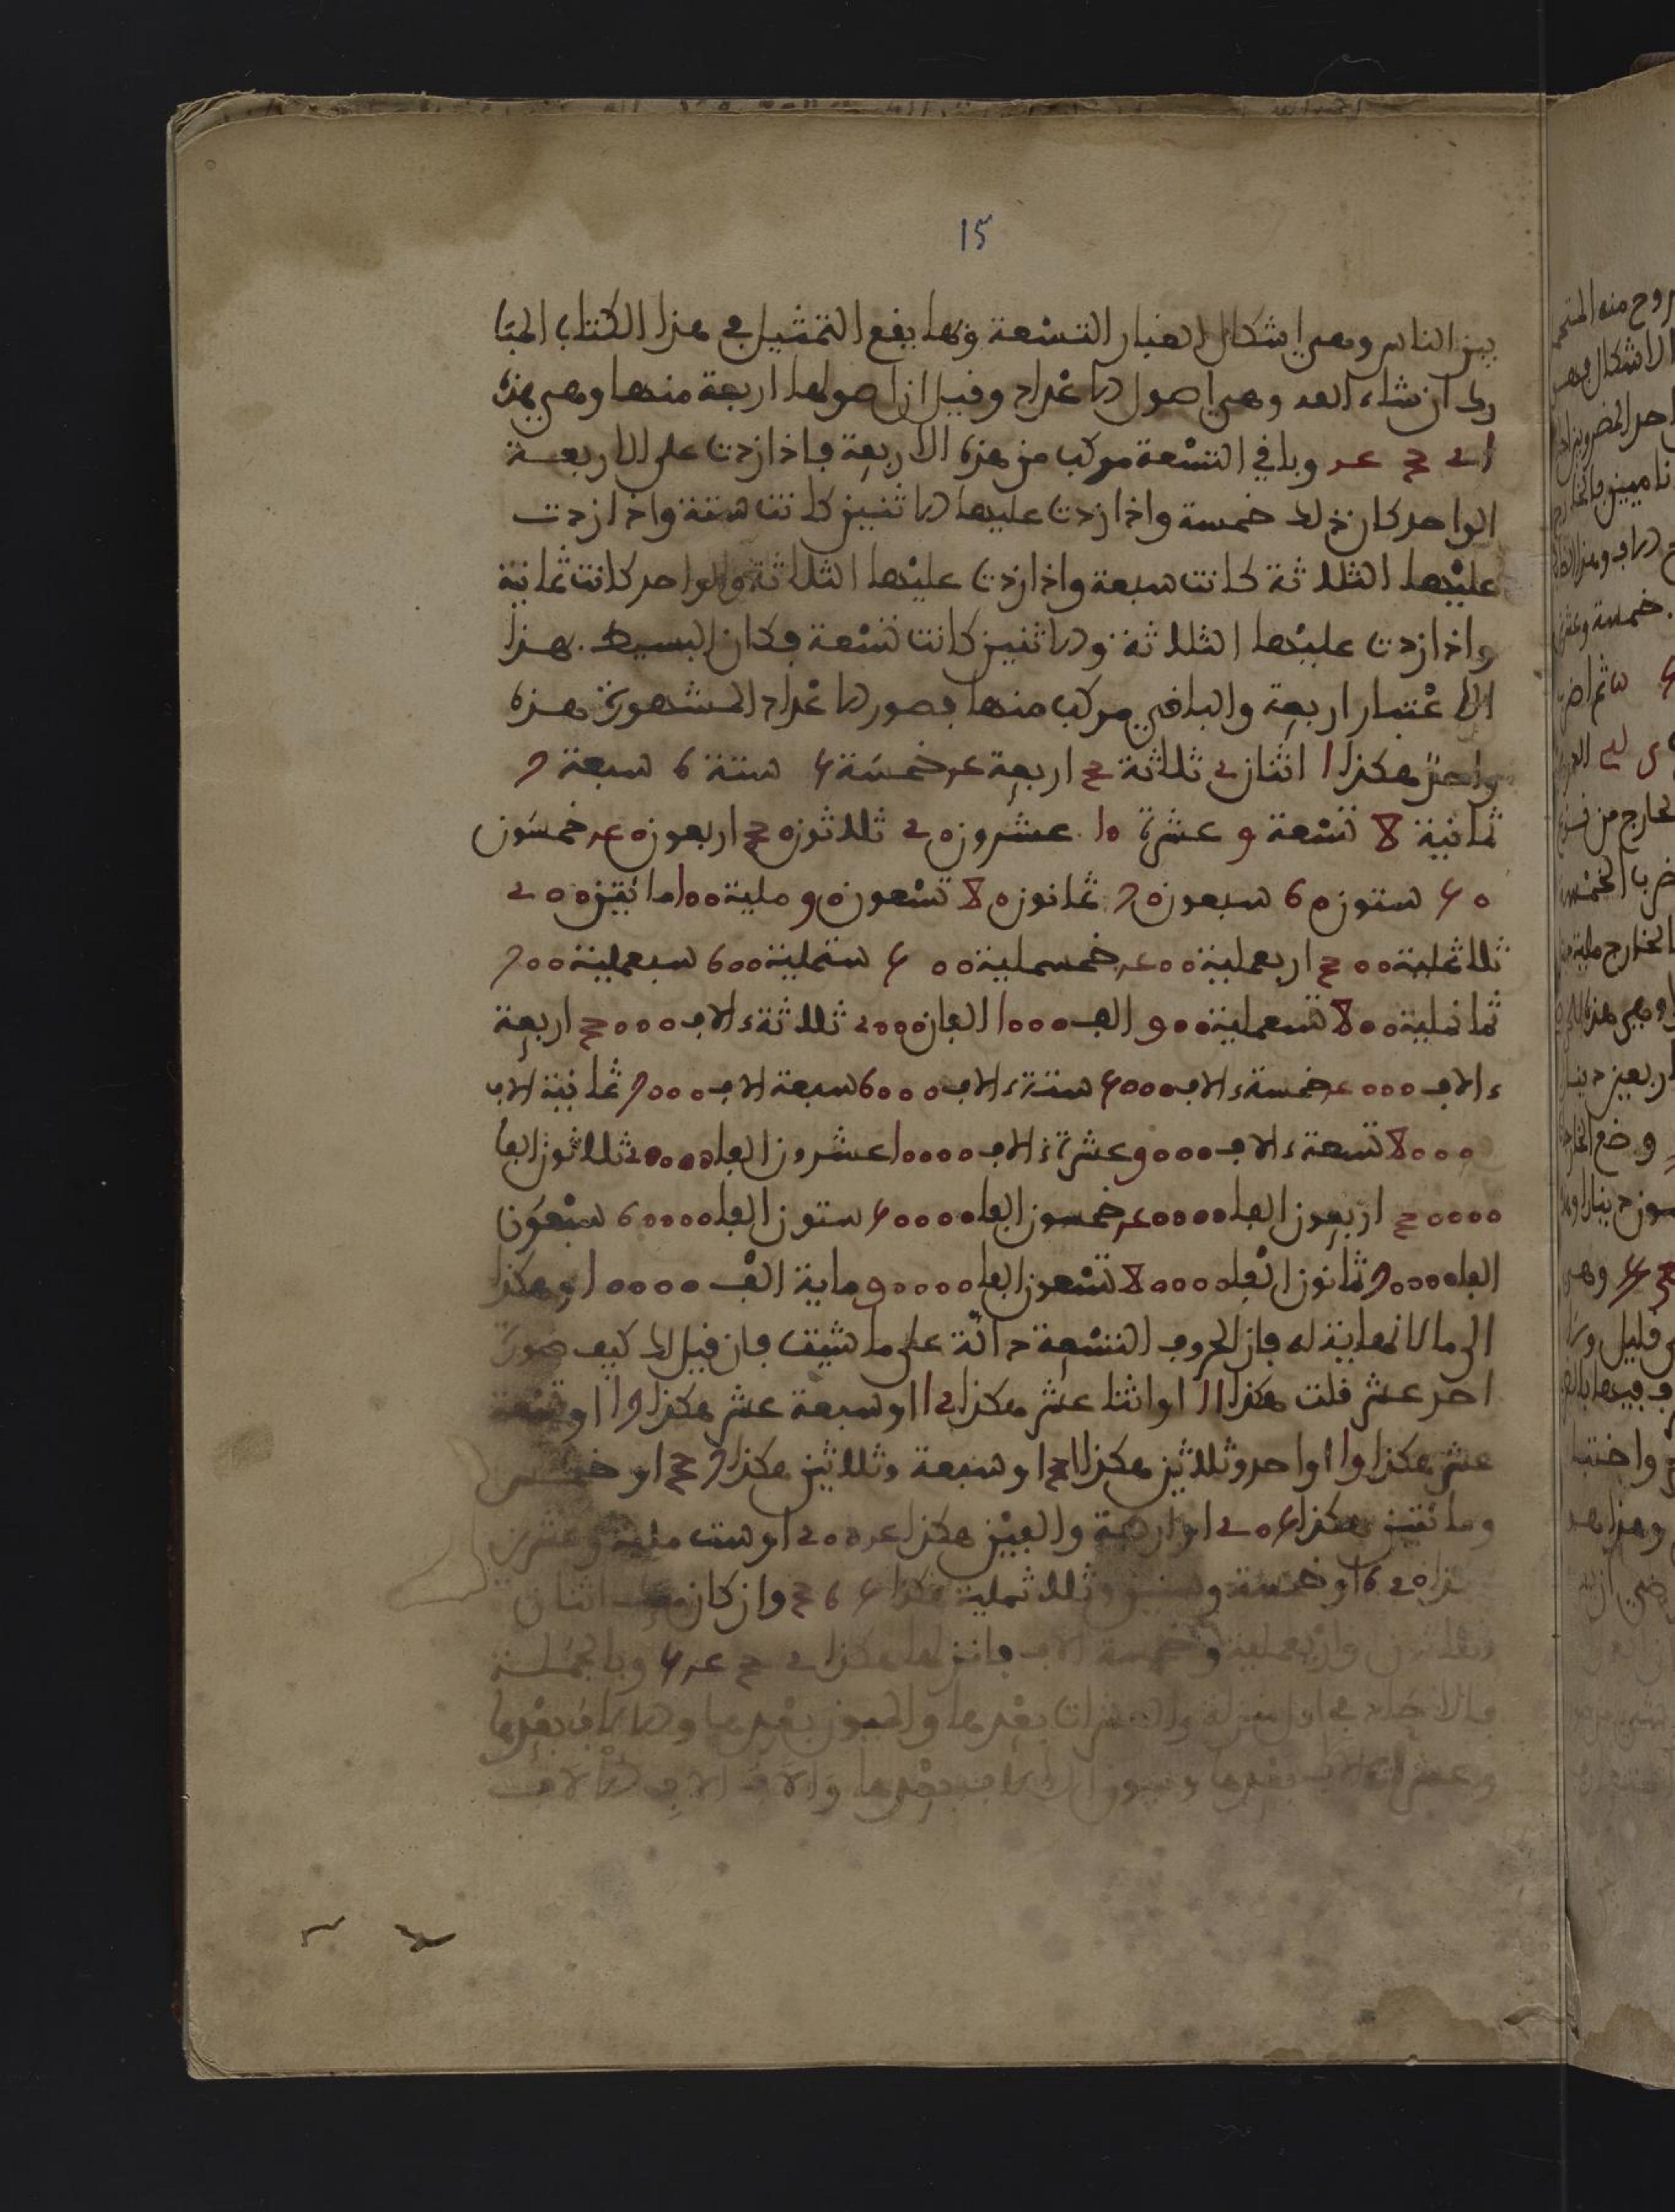 15
بين الناس وهي اشكال الغبار التسعة وبها يقع التمثيل في هذا الكتاب المبا
رك ان شاء الله وهي اصول الاعداد وقيل ان اصولها اربعة منها وهي هذه
1 2 3 4 وباقي التسعة مركب من هذه الاربعة فاذا زدت على الاربعة
الواحد كان ذلك خمسة واذا زدت عليها الاثنين كانت ستة واذا زدت
عليها الثلاثة كانت سبعة واذا زدت عليها الثلاثة والواحد كانت ثمانية
واذا زدت عليها الثلاثة والاثنين كانت تسعة فكان البسيط بهذا
الاعتبار اربعة والباقي مركب منها فصور الاعداد المشهورة هذه
واحد هكذا 1 اثنان 2 ثلاثة 3 اربعة 4 خمسة 5 ستة 6 سبعة 7
ثمانية 8 تسعة 9 عشرة 10 عشرون 20 ثلاثون 30 اربعون 40 خمسون
50 ستون 60 سبعون 70 ثمانون 80 تسعون 90 مائة 100 مائتين 200
ثلاثمائة 300 اربعمائة 400 خمسمائة 500 ستمائة 600 سبعمائة 700
ثمانمائة 800 تسعمائة 900 الف 1000 الفان 2000 ثلاثة ءالاف 3000 اربعة
ءالاف 4000 خمسة ءالاف 5000 ستة ءالاف 6000 سبعة الاف 7000 ثمانية الاف
8000 تسعة ءالاف 9000 عشرة ءالاف 10000 عشرون الفا 20000 ثلاثون الفا
30000 اربعون الفا 40000 خمسون الفا 50000 ستون الفا 60000 سبعون
الفا 70000 ثمانون الفا 80000 تسعون الفا 90000 ومائة الف 10000 وهكذا
الى ما لا نهاية له فان الحروف التسعة دالة على ما شيت فان قيل لك كيف صورة
احد عشر قلت هكذا 11 او اثنا عشر هكذا 12 او سبعة عشر هكذا 17 او تسعة
عشر هكذا 19 او احد وثلاثين هكذا 31 او سبعة وثلاثين هكذا 37 او خمسة
ومائتين هكذا 205 او اربعة والفين هكذا 2004 او ست مائة وعشرين
620 او خمسة وستين وثلاثمائة هكذا 365 وان كان اثنان
وثلاثون واربعمائة وخمسة الاف فانزلها هكذا 2 3 4 5 وبالجملة
فالاحاد في اول منزلة والعشرات بعدها والميون بعدها والالاف بعدها
وعشرات الالاف بعدها وميون الالاف بعدها والاف الاف الالاف